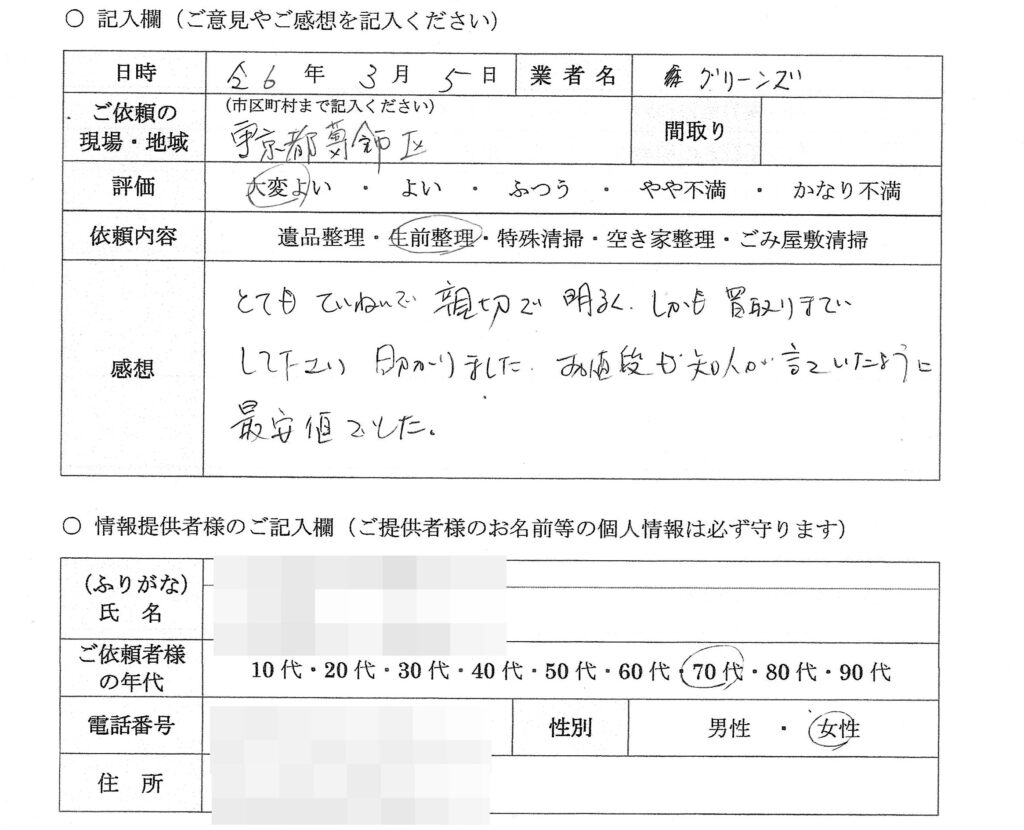 ○ 記入欄（ご意見やご感想を記入ください）
日時 令6年3月5日 業者名 グリーンズ
ご依頼の現場・地域 (市区町村まで記入ください) 東京都葛飾区 間取り
評価 大変よい ・ よい ・ ふつう ・ やや不満 ・ かなり不満
依頼内容 遺品整理・生前整理・特殊清掃・空き家整理・ごみ屋敷清掃
感想
とても ていねいで 親切で 明るく、しかも 買取りまで
して下さい 助かりました、お値段も 知人が 言っていたように
最安値でした。
○ 情報提供者様のご記入欄（ご提供者様のお名前等の個人情報は必ず守ります）
（ふりがな）
氏 名
ご依頼者様の年代 10代・20代・30代・40代・50代・60代・70代・80代・90代
電話番号 性別 男性 ・ 女性
住 所